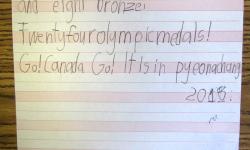 and eight bronze.
Twentyfourolympicmedals!
Go! Canada Go! It Is in pyeongchang
2018.